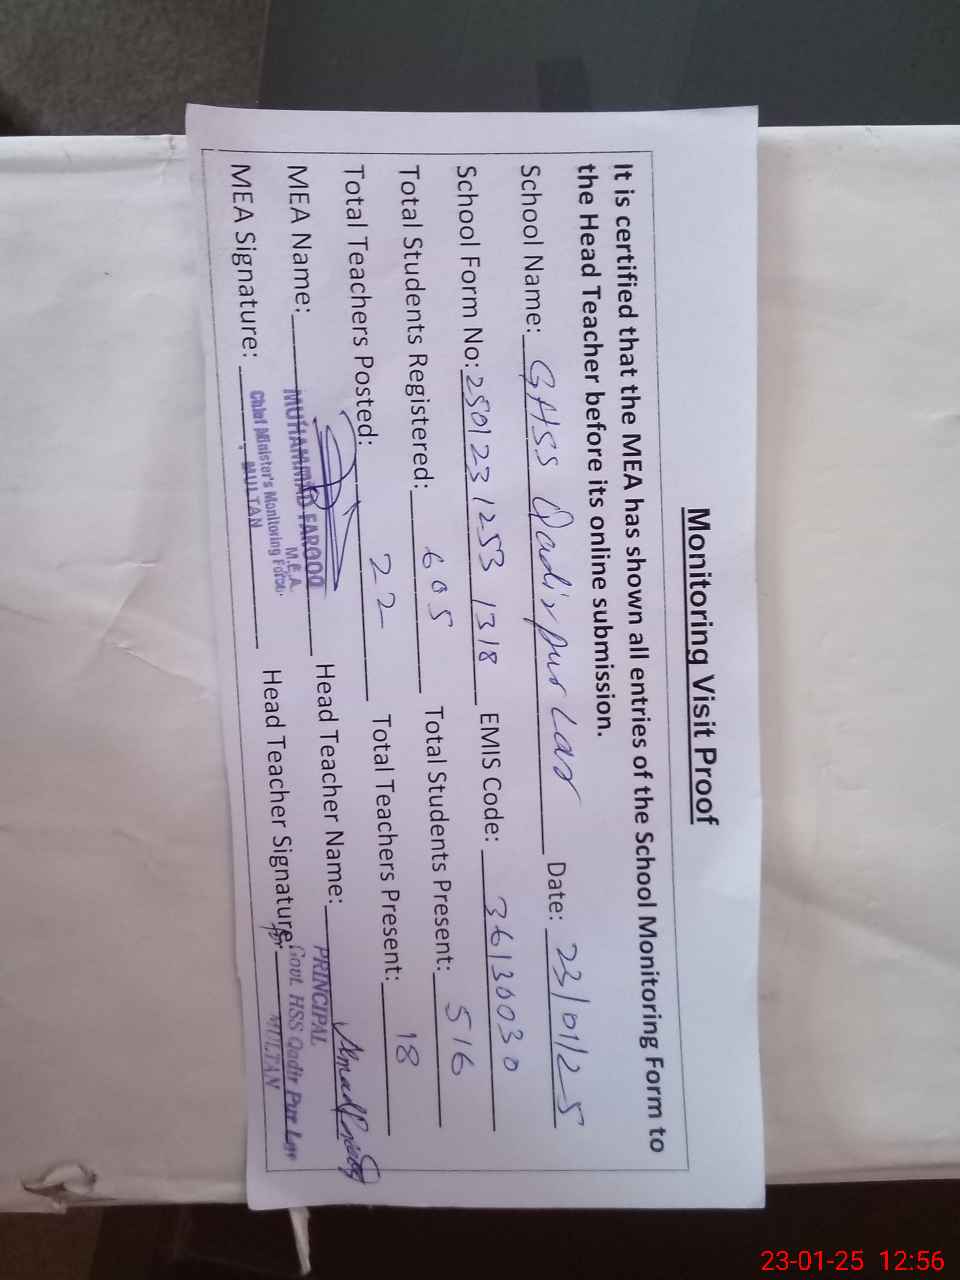 Monitoring Visit Proof
It is certified that the MEA has shown all entries of the School Monitoring Form to
the Head Teacher before its online submission.
School Name: GHSS Qadirpur Lar Date: 23/01/25
School Form No: 250123 1253 1318 EMIS Code: 36130030
Total Students Registered: 605 Total Students Present: 516
Total Teachers Posted: 22 Total Teachers Present: 18
MEA Name: MUHAMMAD FAROOQ Head Teacher Name:
M.E.A. PRINCIPAL
MEA Signature: Chief Minister's Monitoring Force, Head Teacher Signature: for Govt. HSS Qadir Pur Lar
MULTAN MULTAN
23-01-25 12:56